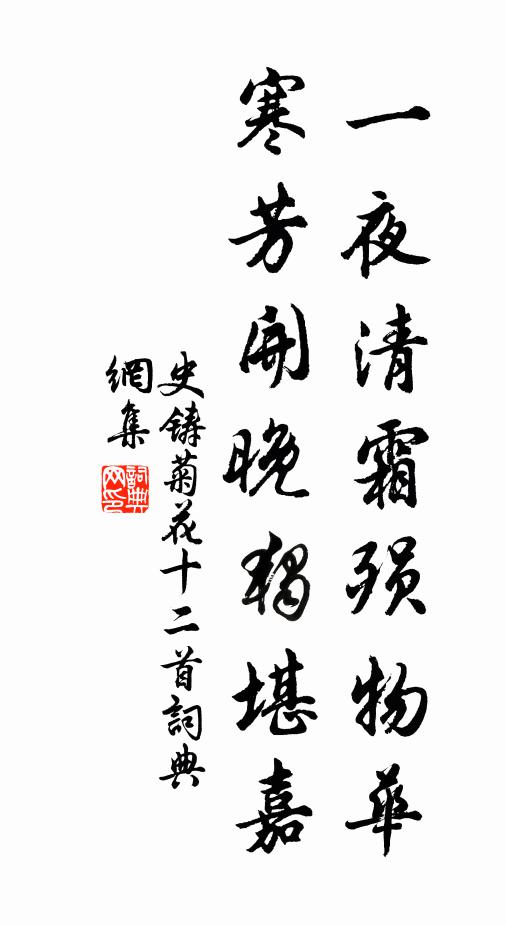 一夜清霜殞物華
寒芳開晚獨堪嘉
史鑄菊花十二首詞典
網集
詞典
網印